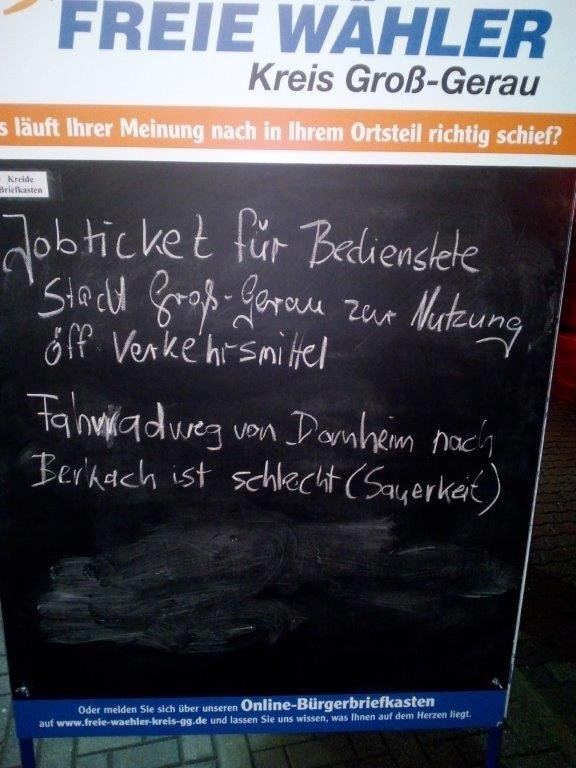 FREIE WÄHLER
Kreis Groß-Gerau
s läuft Ihrer Meinung nach in Ihrem Ortsteil richtig schief?
Kreide
Briefkasten
Jobticket für Bedienstete
Stadt Groß-Gerau zur Nutzung
öff. Verkehrsmittel
Fahrradweg von Dornheim nach
Berkach ist schlecht (Sauerkeit)
Oder melden Sie sich über unseren Online-Bürgerbriefkasten
auf www.freie-waehler-kreis-gg.de und lassen Sie uns wissen, was Ihnen auf dem Herzen liegt.